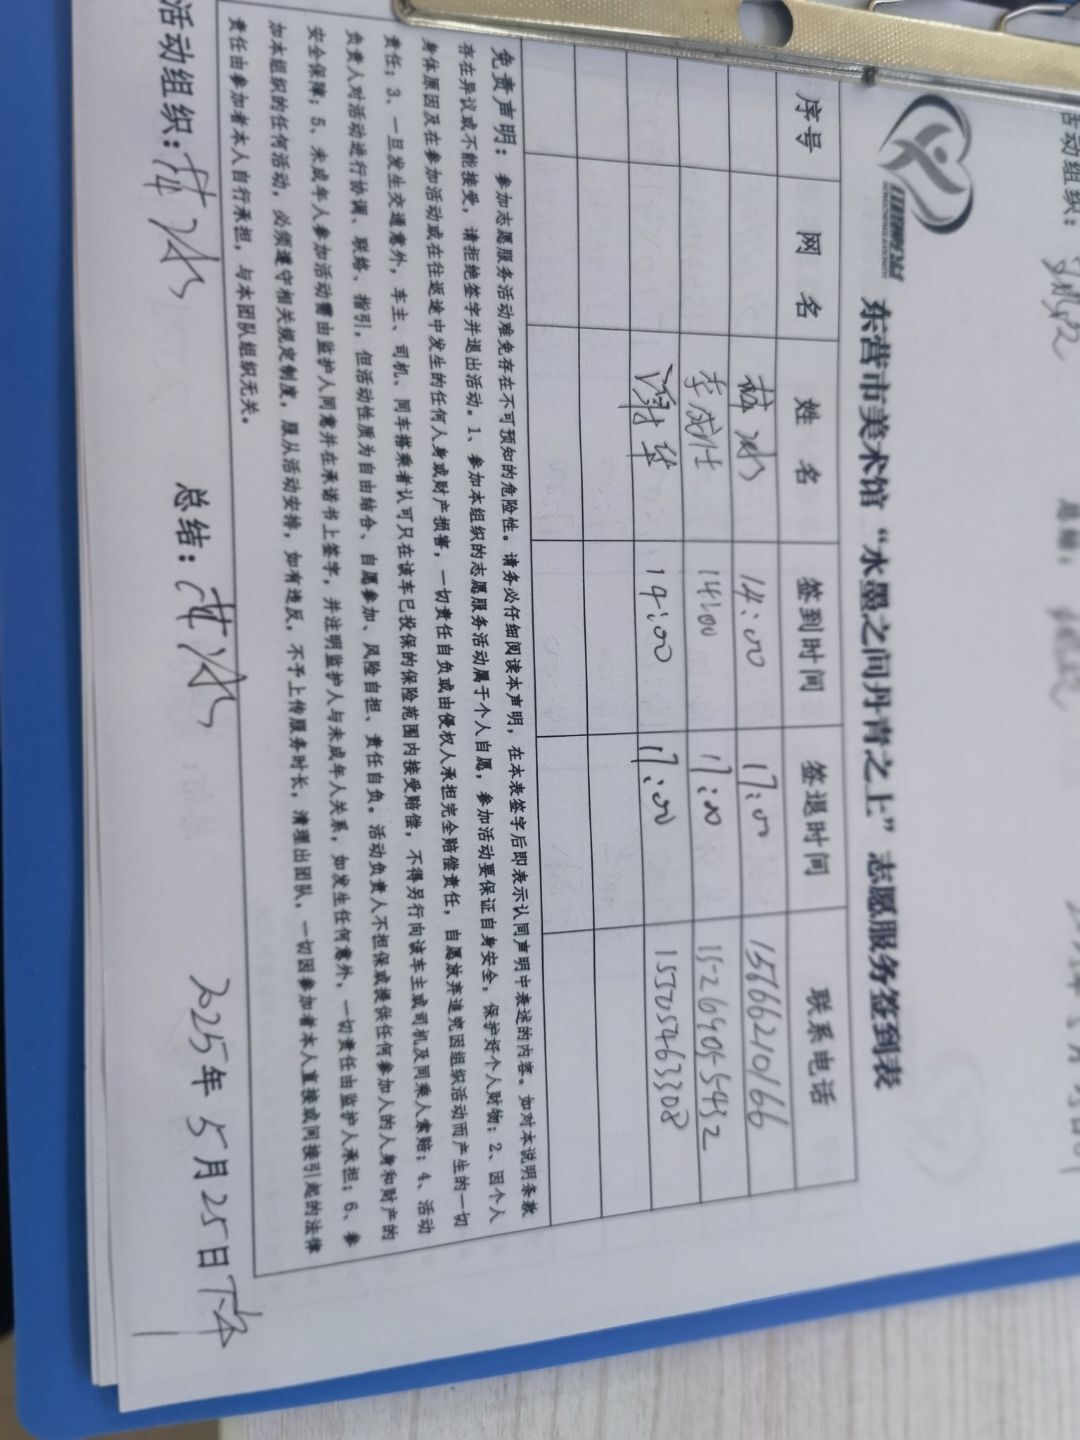 东营市美术馆“水墨之间丹青之上”志愿服务签到表
序号 网名 姓名 签到时间 签退时间 联系电话
林冰 14:00 17:00 15866210166
李成仕 14:00 17:00 15269055492
谢华 14:00 17:00 15505463308
免责声明：参加志愿服务活动难免存在不可预知的危险性。请务必仔细阅读本声明，在本表签字后即表示认同声明中表述的内容。如对本说明条款
存在异议或不能接受，请拒绝签字并退出活动。1、参加本组织的志愿服务活动属于个人自愿，参加活动要保证自身安全，保护好个人财物；2、因个人
身体原因及在参加活动或在往返途中发生的任何人身或财产损害，一切责任自负或由侵权人承担完全赔偿责任，自愿放弃追究因组织活动而产生的一切
责任；3、一旦发生交通意外，车主、司机、同车搭乘者认可只在该车已投保的保险范围内接受赔偿，不得另行向该车主或司机及同乘人索赔；4、活动
负责人对活动进行协调、联络、指引，但活动性质为自由结合、自愿参加、风险自担、责任自负。活动负责人不担保或提供任何参加人的人身和财产的
安全保障；5、未成年人参加活动需由监护人同意并在承诺书上签字，并注明监护人与未成年人关系，如发生任何意外，一切责任由监护人承担；6、参
加本组织的任何活动，必须遵守相关规定制度，服从活动安排，如有违反，不予上传服务时长，清理出团队，一切因参加者本人直接或间接引起的法律
责任由参加者本人自行承担，与本团队组织无关。
活动组织：林冰 总结：林冰 2025年5月25日下午